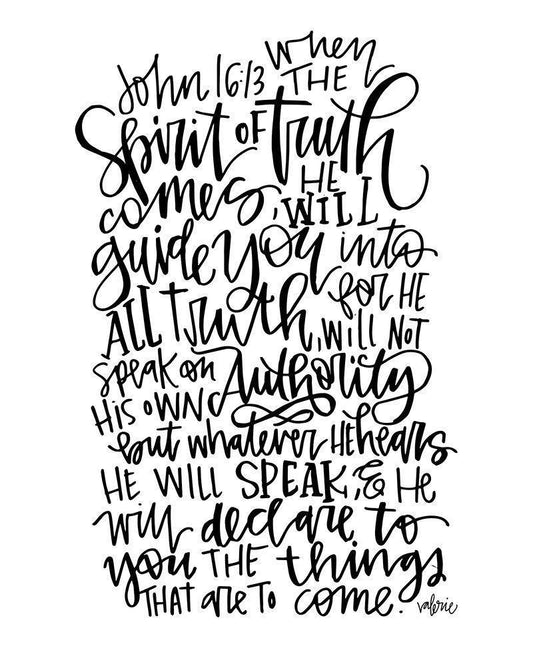 John 16:13 when
THE
Spirit of truth
comes, HE WILL
guide you into
ALL truth, for HE
WILL NOT
speak on Authority
HIS OWN
but whatever HE hears
HE WILL SPEAK, & He
will declare to
you THE things
THAT are To come.
valerie